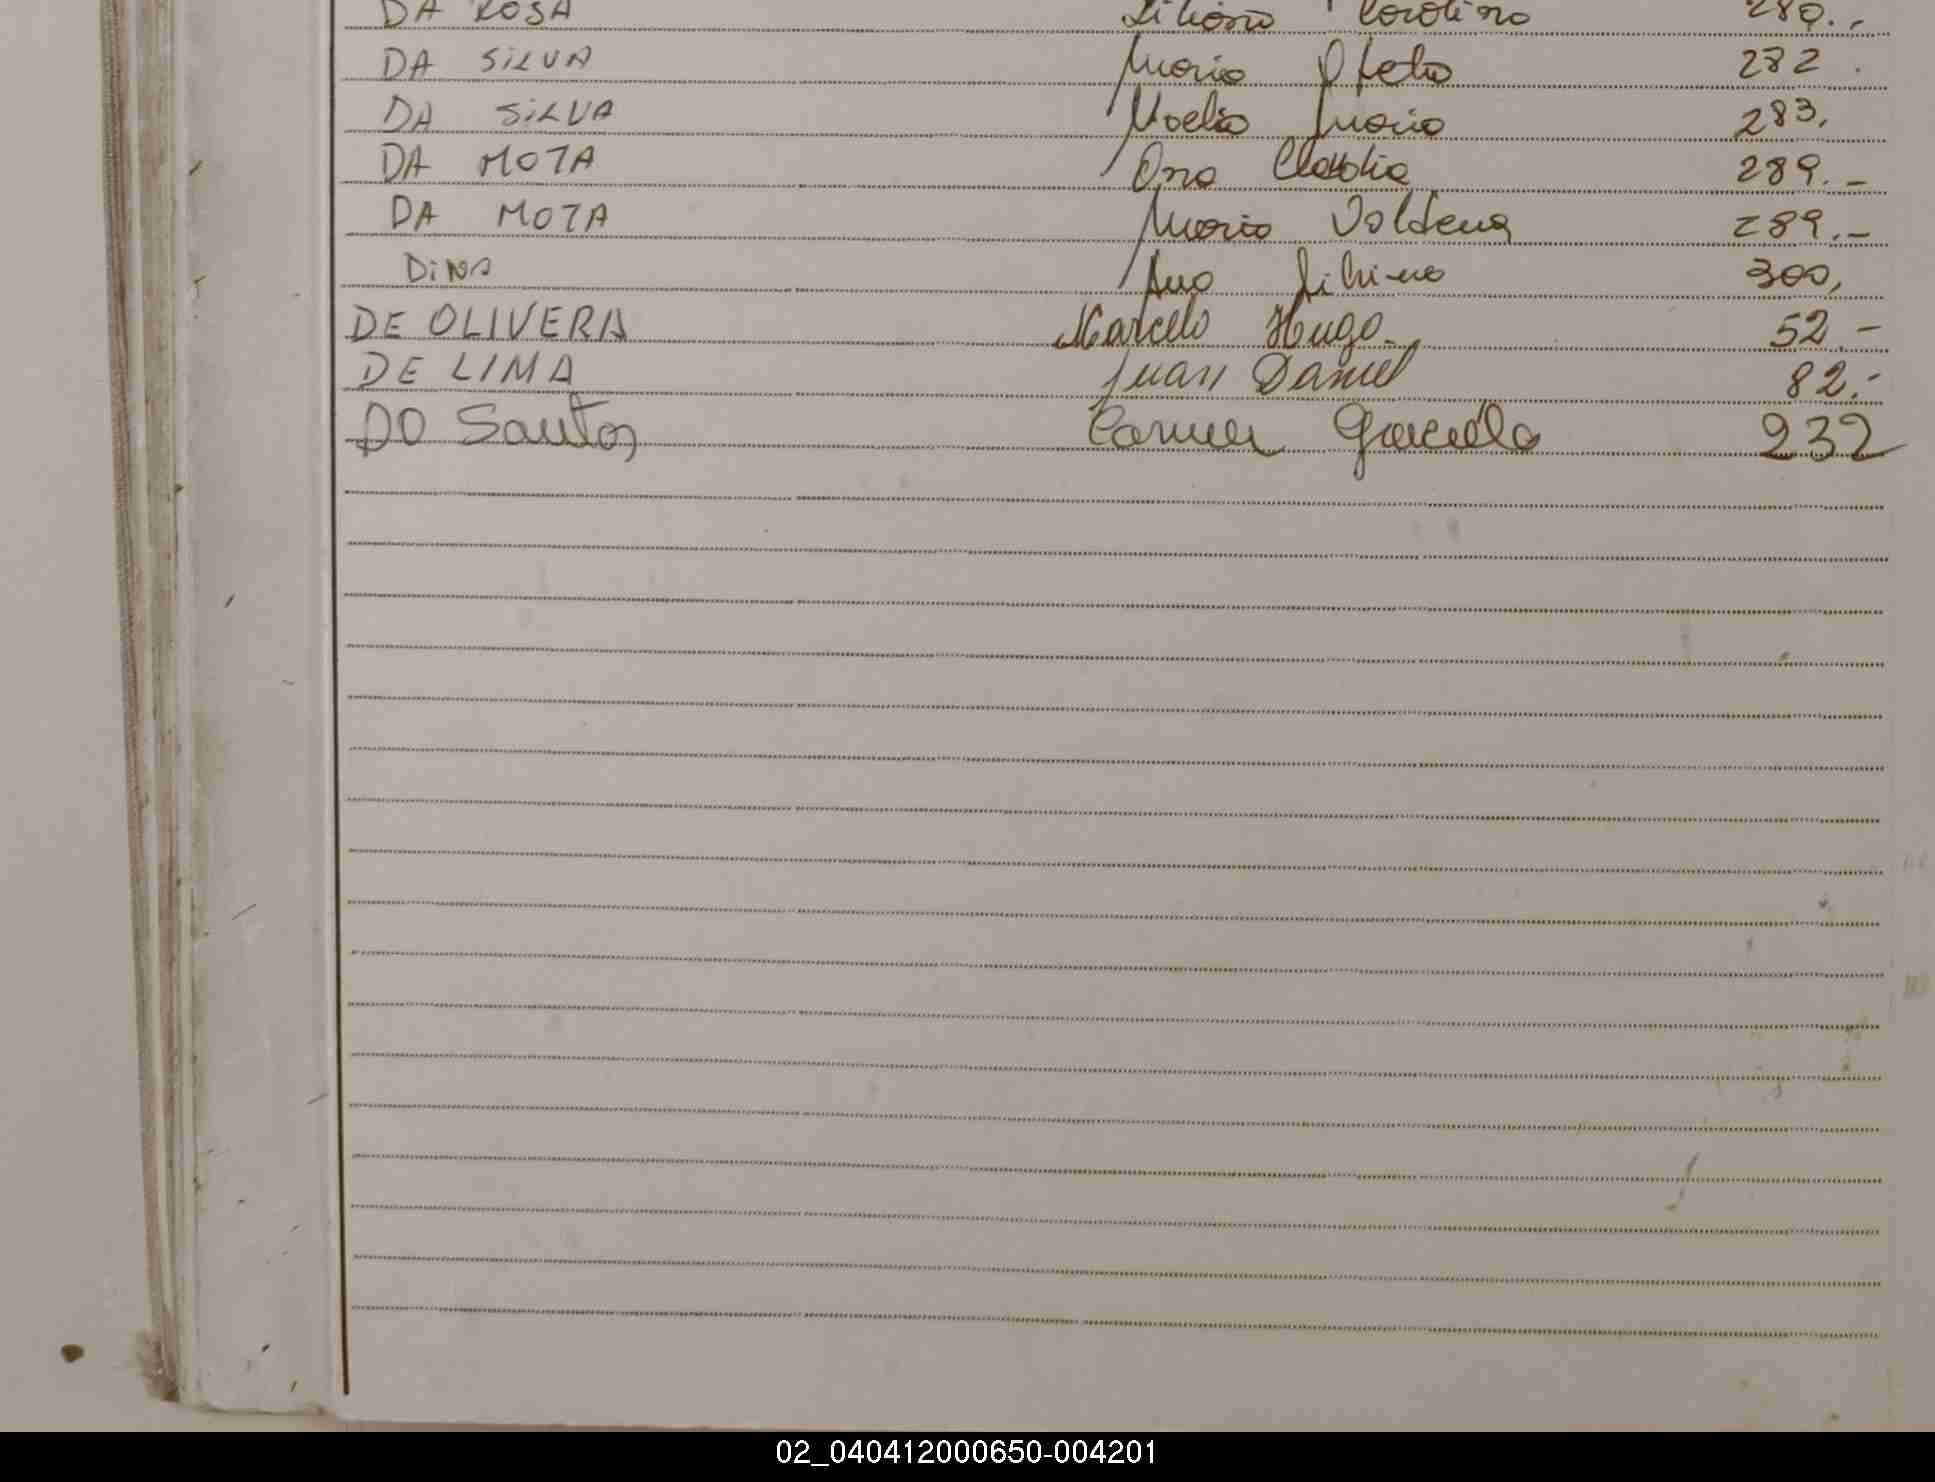 DA ROSA Liliana Carolina 280.-
DA SILVA Maria Ofelia 282.
DA SILVA Noelia Maria 283.
DA MOTA Ana Claudia 289.-
DA MOTA Maria Valdena 289.-
DINA Ana Silvina 300,
DE OLIVERA Marcelo Hugo.- 52.-
DE LIMA Juan Daniel 82.-
DO Santos Carmen Graciela 232
02_040412000650-004201